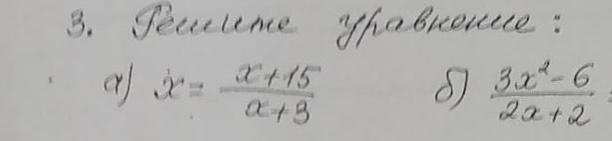 3. Решите уравнение:
а) x = \frac{x+15}{x+3} б) \frac{3x²-6}{2x+2}